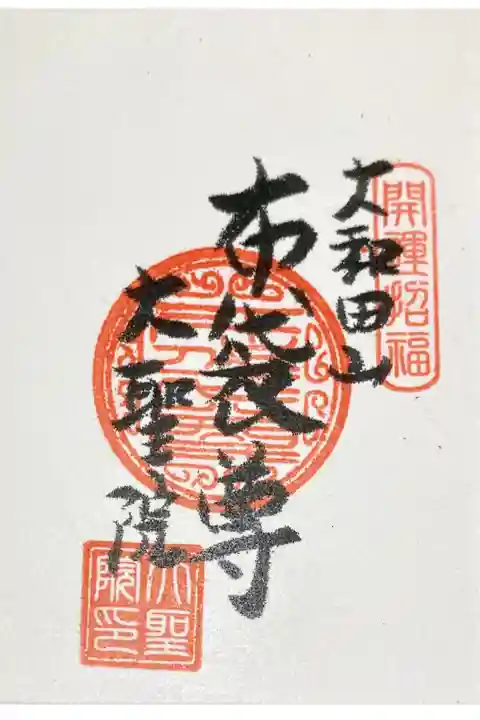 開運招福
大和田山
布袋尊
大聖院
大聖院印